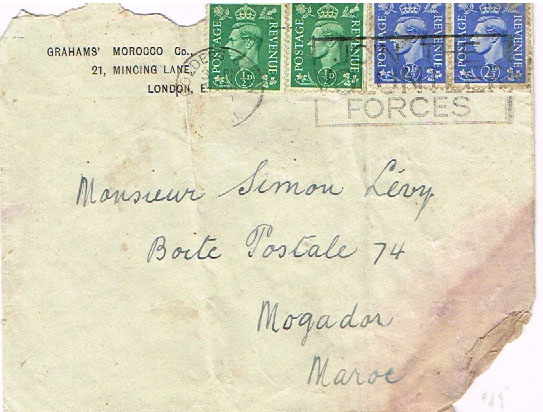 GRAHAMS' MOROCCO Co.,
21, MINCING LANE,
LONDON, E.
POSTAGE REVENUE ½D
POSTAGE REVENUE ½D
POSTAGE REVENUE 2½D
POSTAGE REVENUE 2½D
FORCES
Monsieur Simon Lévy
Boite Postale 74
Mogador
Maroc